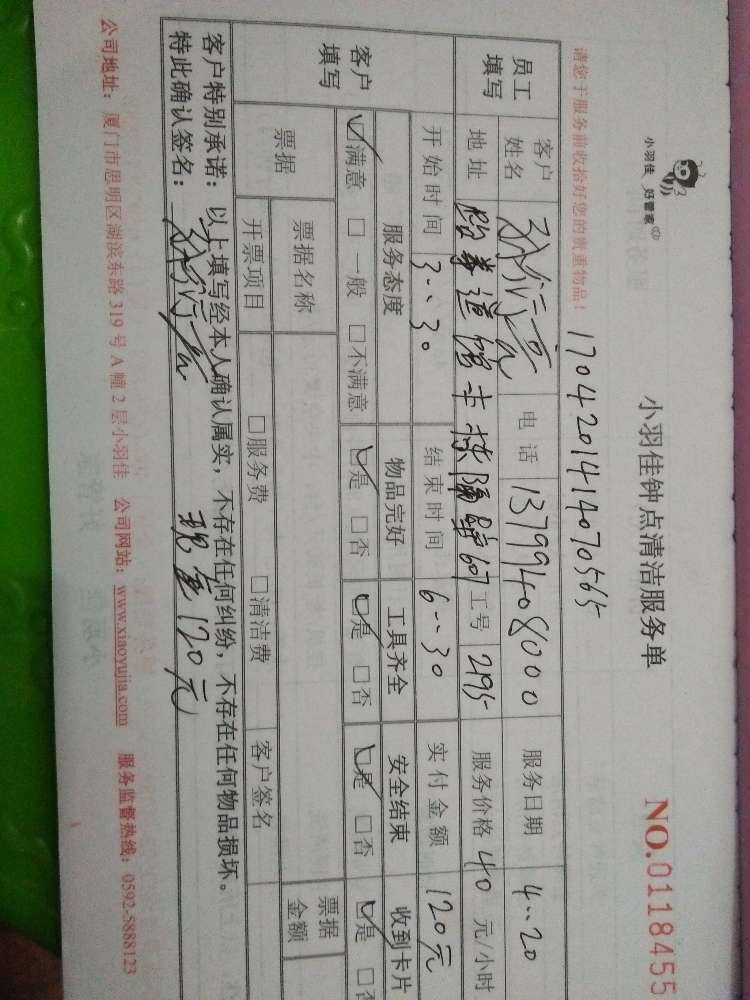 小羽佳 好管家
小羽佳钟点清洁服务单
NO.0118455
请您于服务前收拾好您的贵重物品!
1704201414070565
员工填写
客户姓名 电话 13799408000 服务日期 4..20
地址 隔壁607 工号 2195 服务价格 40 元/小时
客户填写
开始时间 3..30 结束时间 6..30 实付金额 120元
服务态度 物品完好 工具齐全 安全结束 收到卡片
☑满意 □一般 □不满意 ☑是 □否 ☑是 □否 ☑是 □否 ☑是 □否
票据 票据名称 票据金额
开票项目 □服务费 □清洁费 客户签名
客户特别承诺:以上填写经本人确认属实,不存在任何纠纷,不存在任何物品损坏。
特此确认签名: 现金120元
公司地址:厦门市思明区湖滨东路319号A幢2层小羽佳 公司网站:www.xiaoyujia.com 服务监督热线:0592-5888123